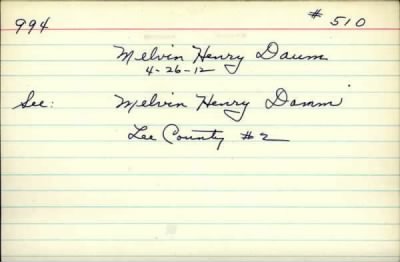 994 # 510
Melvin Henry Daum
4-26-12
See: Melvin Henry Damm
Lee County #2